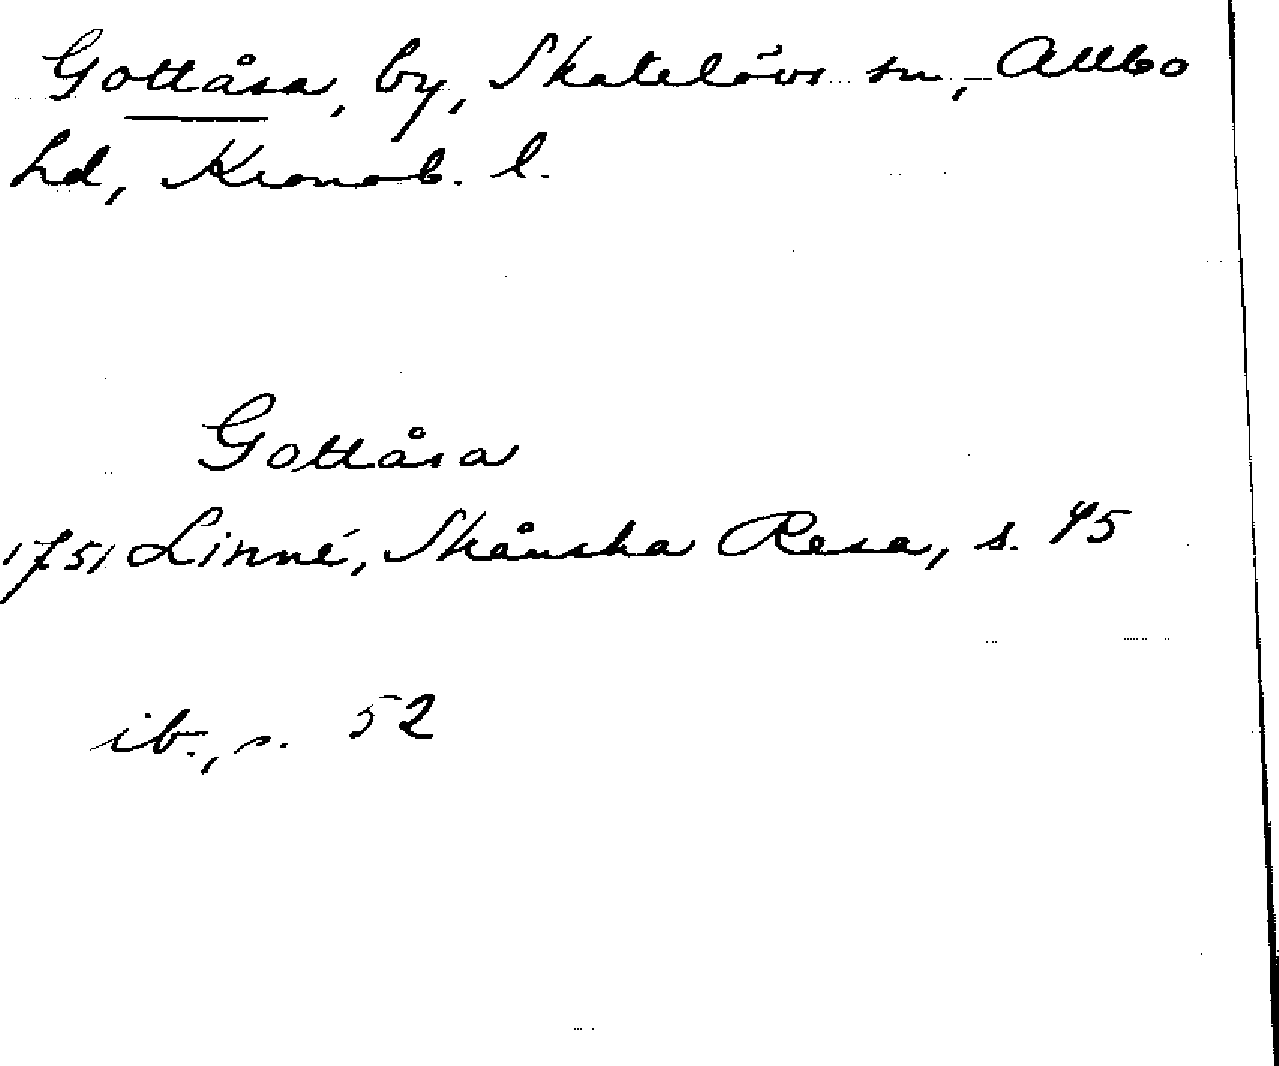 Gottåsa, by, Skatelövs sn, Allbo
hd, Kronob. l.
Gottåsa
1751 Linné, Skånska Resa, s. 45
ib., s. 52